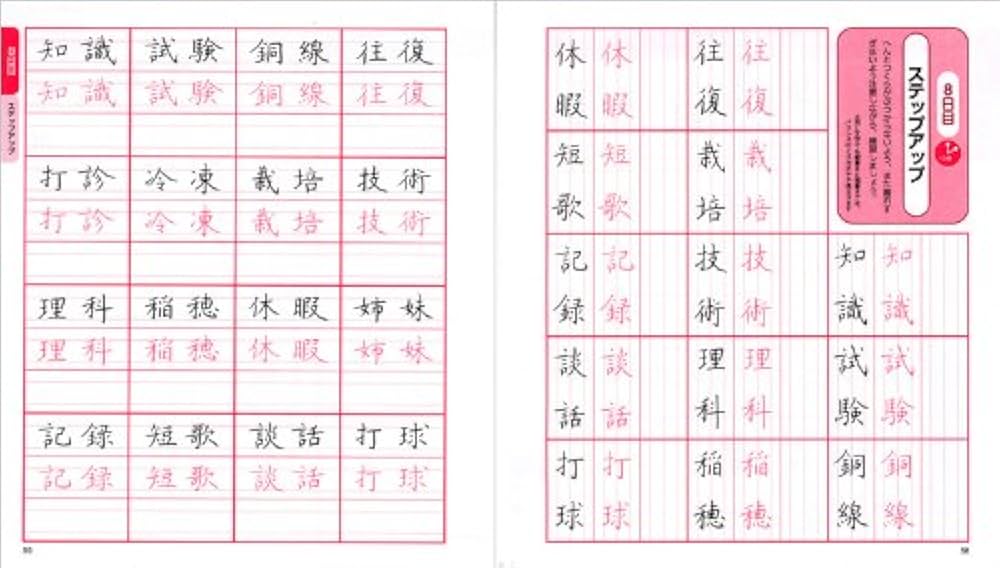 8日目
ステップアップ
知識 知識
試験 試験
銅線 銅線
往復 往復
栽培 栽培
技術 技術
理科 理科
稲穂 稲穂
休暇 休暇
短歌 短歌
記録 記録
談話 談話
打球 打球
ステップアップ
知識 試験 銅線 往復
知識 試験 銅線 往復
打診 冷凍 栽培 技術
打診 冷凍 栽培 技術
理科 稲穂 休暇 姉妹
理科 稲穂 休暇 姉妹
記録 短歌 談話 打球
記録 短歌 談話 打球